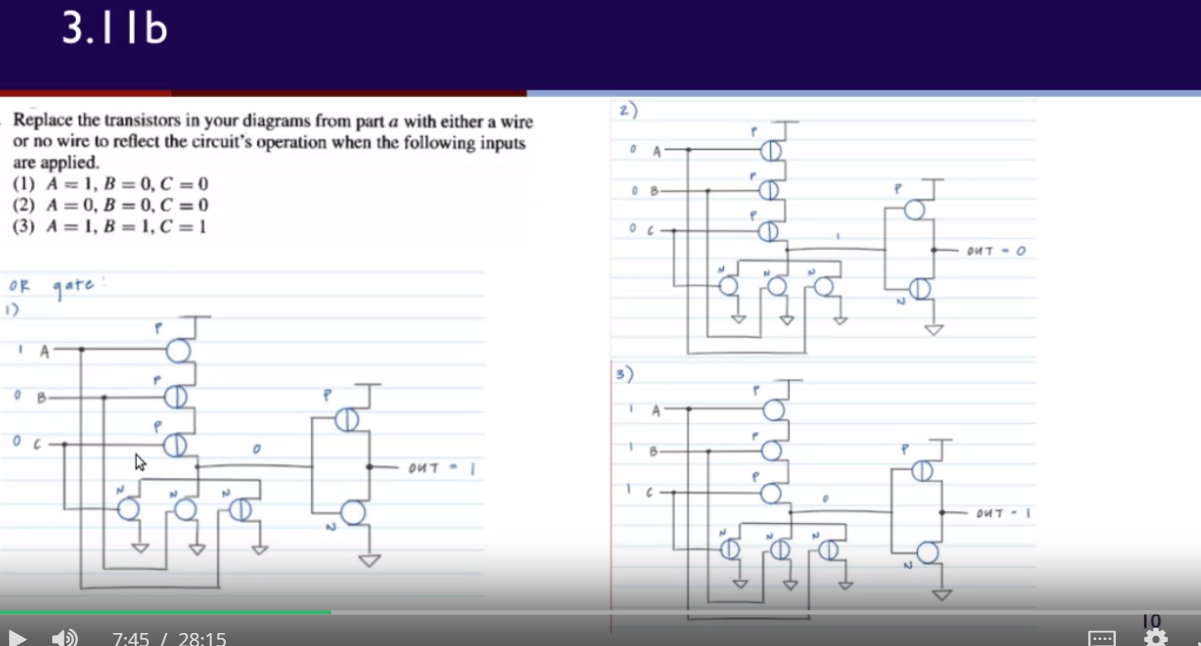 3.11b
Replace the transistors in your diagrams from part a with either a wire
or no wire to reflect the circuit's operation when the following inputs
are applied.
(1) A = 1, B = 0, C = 0
(2) A = 0, B = 0, C = 0
(3) A = 1, B = 1, C = 1
OR gate:
1)
P
1 A
P
0 B
P
P
0 C
0
OUT = 1
N N N
N
2)
P
0 A
P
0 B
P
P
0 C
1
OUT = 0
N N N
N
3)
P
1 A
P
1 B
P
P
1 C
0
OUT = 1
N N N
N
10
7:45 / 28:15